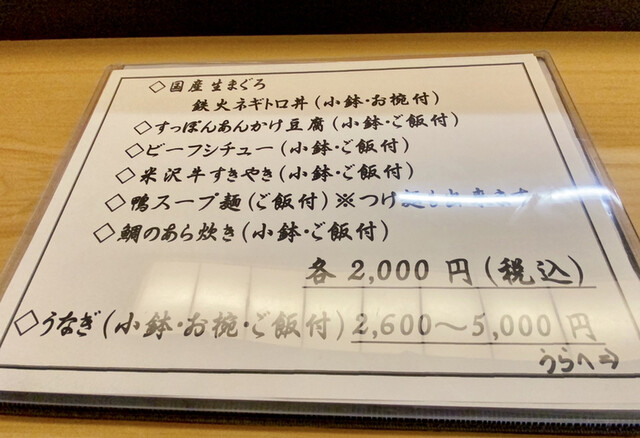 ◇国産生まぐろ
鉄火ネギトロ丼(小鉢・お椀付)
◇すっぽんあんかけ豆腐(小鉢・ご飯付)
◇ビーフシチュー(小鉢・ご飯付)
◇米沢牛すきやき(小鉢・ご飯付)
◇鴨スープ麺(ご飯付)※つけ麺も出来ます
◇鯛のあら炊き(小鉢・ご飯付)
各2,000円(税込)
◇うなぎ(小鉢・お椀・ご飯付)2,600〜5,000円
うらへ⇒